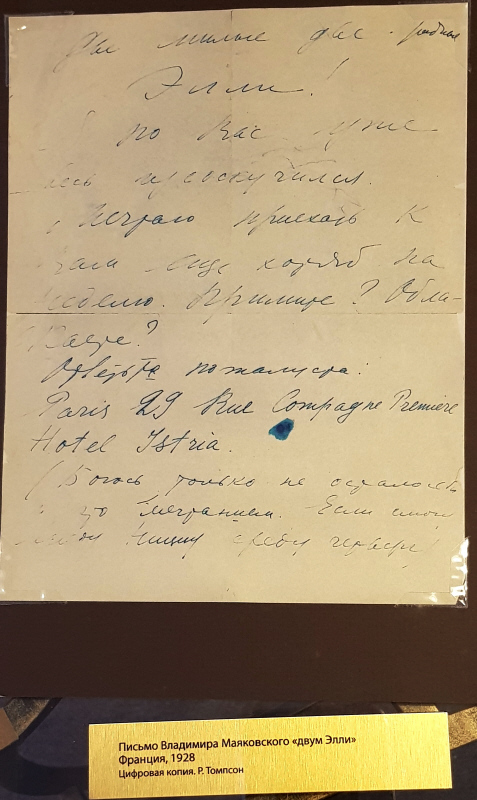 Две милые две родные
Элли!
по Вас уже
весь изсоскучился.
Мечтаю приехать к
вам еще хотяб на
неделю. Примите? Обла-
каете?
Ответьте пожалуйста:
Paris 29 Rue Compagne Première
Hotel Istria.
(Боюсь только не осталось
это мечтанием. Если
Ниццу среду четверг
Письмо Владимира Маяковского «двум Элли»
Франция, 1928
Цифровая копия. Р. Томпсон